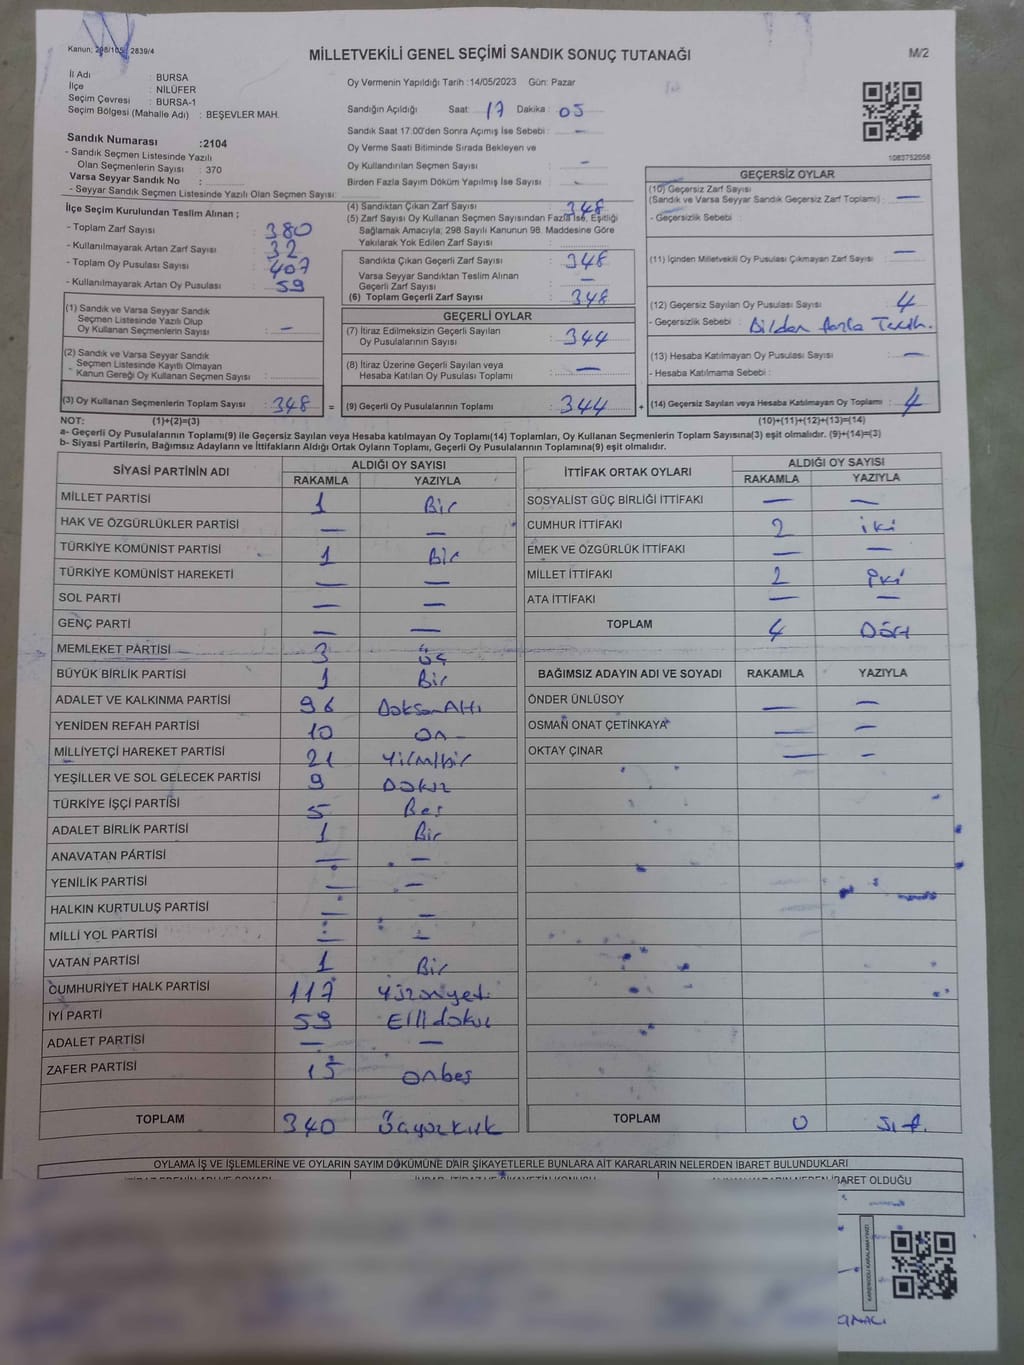 Kanun; 298/105, 2839/4
MİLLETVEKİLİ GENEL SEÇİMİ SANDIK SONUÇ TUTANAĞI
M/2
İl Adı : BURSA
İlçe : NİLÜFER
Seçim Çevresi : BURSA-1
Seçim Bölgesi (Mahalle Adı) : BEŞEVLER MAH.
Oy Vermenin Yapıldığı Tarih :14/05/2023 Gün: Pazar
Sandığın Açıldığı Saat: 17 Dakika : 05
Sandık Saat 17.00'den Sonra Açımış İse Sebebi : –
Oy Verme Saati Bitiminde Sırada Bekleyen ve
Oy Kullandırılan Seçmen Sayısı : –
Birden Fazla Sayım Döküm Yapılmış İse Sayısı : -
1083752058
Sandık Numarası :2104
- Sandık Seçmen Listesinde Yazılı
Olan Seçmenlerin Sayısı : 370
Varsa Seyyar Sandık No :
- Seyyar Sandık Seçmen Listesinde Yazılı Olan Seçmen Sayısı:
İlçe Seçim Kurulundan Teslim Alınan ;
- Toplam Zarf Sayısı : 380
- Kullanılmayarak Artan Zarf Sayısı : 32
- Toplam Oy Pusulası Sayısı : 407
- Kullanılmayarak Artan Oy Pusulası : 59
(1) Sandık ve Varsa Seyyar Sandık
Seçmen Listesinde Yazılı Olup
Oy Kullanan Seçmenlerin Sayısı : –
(2) Sandık ve Varsa Seyyar Sandık
Seçmen Listesinde Kayıtlı Olmayan
Kanun Gereği Oy Kullanan Seçmen Sayısı :
(3) Oy Kullanan Seçmenlerin Toplam Sayısı : 348
(4) Sandıktan Çıkan Zarf Sayısı : 348
(5) Zarf Sayısı Oy Kullanan Seçmen Sayısından Fazla İse, Eşitliği
Sağlamak Amacıyla; 298 Sayılı Kanunun 98. Maddesine Göre
Yakılarak Yok Edilen Zarf Sayısı :
Sandıkta Çıkan Geçerli Zarf Sayısı : 348
Varsa Seyyar Sandıktan Teslim Alınan
Geçerli Zarf Sayısı : –
(6) Toplam Geçerli Zarf Sayısı : 348
GEÇERLİ OYLAR
(7) İtiraz Edilmeksizin Geçerli Sayılan
Oy Pusulalarının Sayısı : 344
(8) İtiraz Üzerine Geçerli Sayılan veya
Hesaba Katılan Oy Pusulası Toplamı : –
= (9) Geçerli Oy Pusulalarının Toplamı : 344
GEÇERSİZ OYLAR
(10) Geçersiz Zarf Sayısı
(Sandık ve Varsa Seyyar Sandık Geçersiz Zarf Toplamı) : –
- Geçersizlik Sebebi :
(11) İçinden Milletvekili Oy Pusulası Çıkmayan Zarf Sayısı : –
(12) Geçersiz Sayılan Oy Pusulası Sayısı : 4
- Geçersizlik Sebebi : Birden fazla Tercih.
(13) Hesaba Katılmayan Oy Pusulası Sayısı : –
- Hesaba Katılmama Sebebi :
+ (14) Geçersiz Sayılan veya Hesaba Katılmayan Oy Toplamı : 4
NOT: (1)+(2)=(3) (10)+(11)+(12)+(13)=(14)
a- Geçerli Oy Pusulasının Toplamı(9) ile Geçersiz Sayılan veya Hesaba katılmayan Oy Toplamı(14) Toplamları, Oy Kullanan Seçmenlerin Toplam Sayısına(3) eşit olmalıdır. (9)+(14)=(3)
b- Siyasi Partilerin, Bağımsız Adayların ve İttifakların Aldığı Ortak Oyların Toplamı, Geçerli Oy Pusulalarının Toplamına(9) eşit olmalıdır.
SİYASİ PARTİNİN ADI ALDIĞI OY SAYISI
RAKAMLA YAZIYLA
MİLLET PARTİSİ 1 Bir
HAK VE ÖZGÜRLÜKLER PARTİSİ – –
TÜRKİYE KOMÜNİST PARTİSİ 1 Bir
TÜRKİYE KOMÜNİST HAREKETİ – –
SOL PARTİ – –
GENÇ PARTİ – –
MEMLEKET PARTİSİ 3 üç
BÜYÜK BİRLİK PARTİSİ 1 Bir
ADALET VE KALKINMA PARTİSİ 96 Doksan Altı
YENİDEN REFAH PARTİSİ 10 On
MİLLİYETÇİ HAREKET PARTİSİ 21 Yirmibir
YEŞİLLER VE SOL GELECEK PARTİSİ 9 Dokuz
TÜRKİYE İŞÇİ PARTİSİ 5 Beş
ADALET BİRLİK PARTİSİ 1 Bir
ANAVATAN PARTİSİ – –
YENİLİK PARTİSİ – –
HALKIN KURTULUŞ PARTİSİ – –
MİLLİ YOL PARTİSİ – –
VATAN PARTİSİ 1 Bir
CUMHURİYET HALK PARTİSİ 117 Yüzonyedi
İYİ PARTİ 59 Ellidokuz
ADALET PARTİSİ – –
ZAFER PARTİSİ 15 Onbeş
TOPLAM 340 Üçyüzkırk
İTTİFAK ORTAK OYLARI ALDIĞI OY SAYISI
RAKAMLA YAZIYLA
SOSYALİST GÜÇ BİRLİĞİ İTTİFAKI – –
CUMHUR İTTİFAKI 2 iki
EMEK VE ÖZGÜRLÜK İTTİFAKI – –
MİLLET İTTİFAKI 2 iki
ATA İTTİFAKI – –
TOPLAM 4 Dört
BAĞIMSIZ ADAYIN ADI VE SOYADI RAKAMLA YAZIYLA
ÖNDER ÜNLÜSOY – –
OSMAN ONAT ÇETİNKAYA – –
OKTAY ÇINAR – –
TOPLAM 0 Sıfır
OYLAMA İŞ VE İŞLEMLERİNE VE OYLARIN SAYIM DÖKÜMÜNE DAİR ŞİKAYETLERLE BUNLARA AİT KARARLARIN NELERDEN İBARET BULUNDUKLARI
İBARET OLDUĞU
KAREKODU KARALAMAYINIZ!